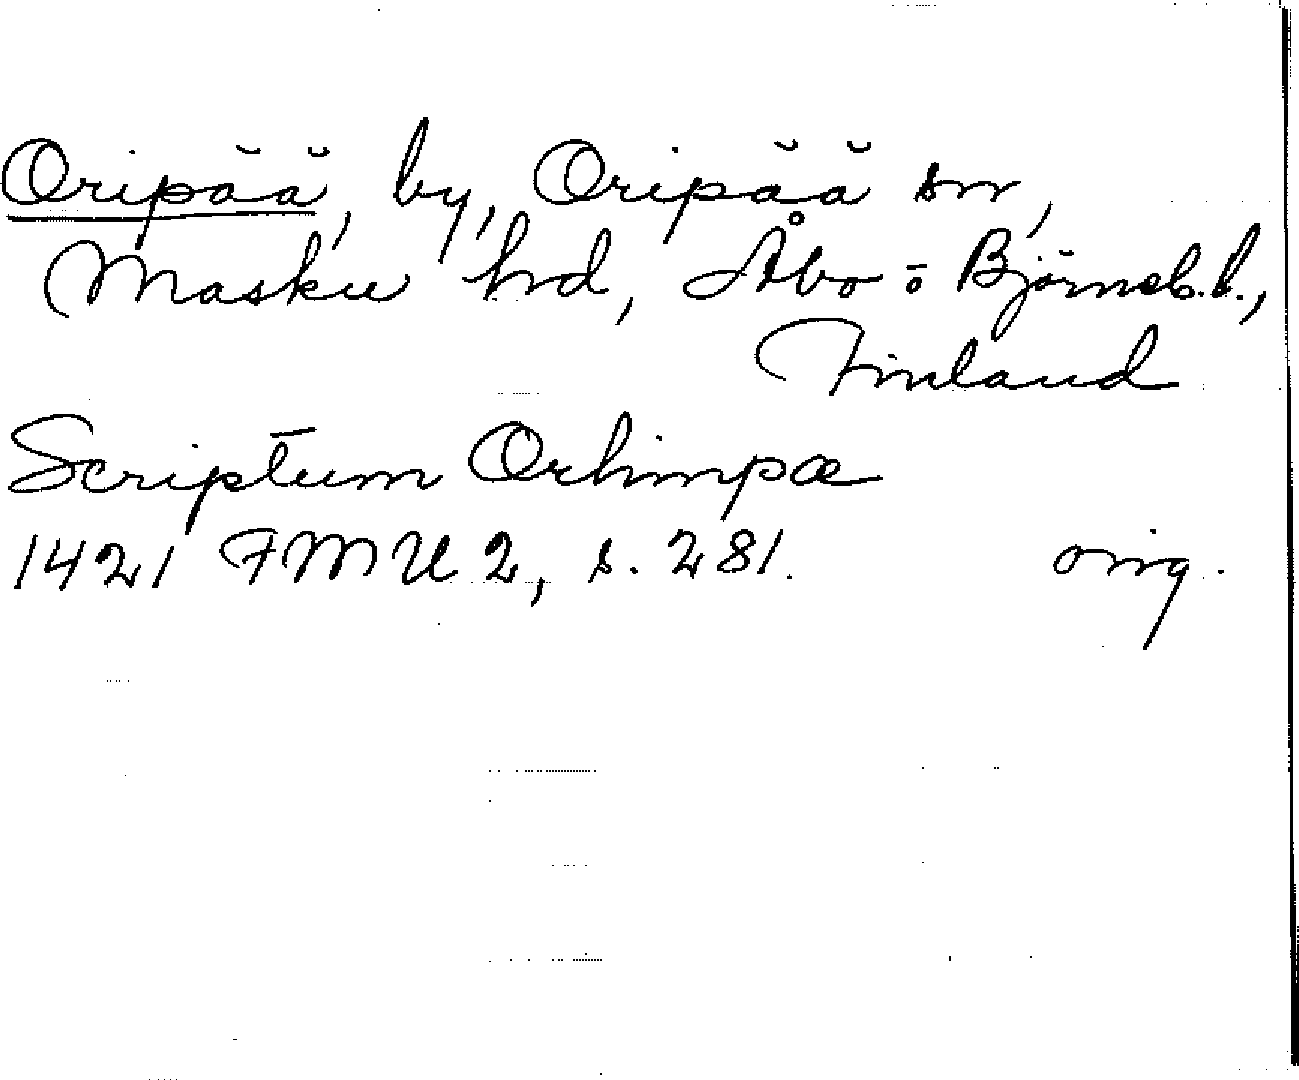 Oripää, by, Oripää sn,
Masku hd, Åbo o Björneb. l.,
Finland
Scriptum Orhimpæ
1421 FMU 2, s. 281. orig.